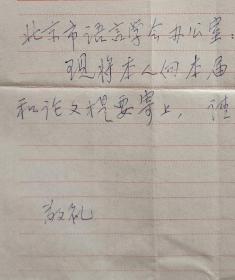 北京市语言学会办公室：
现将本人向本届
和论文提要寄上，请
敬礼